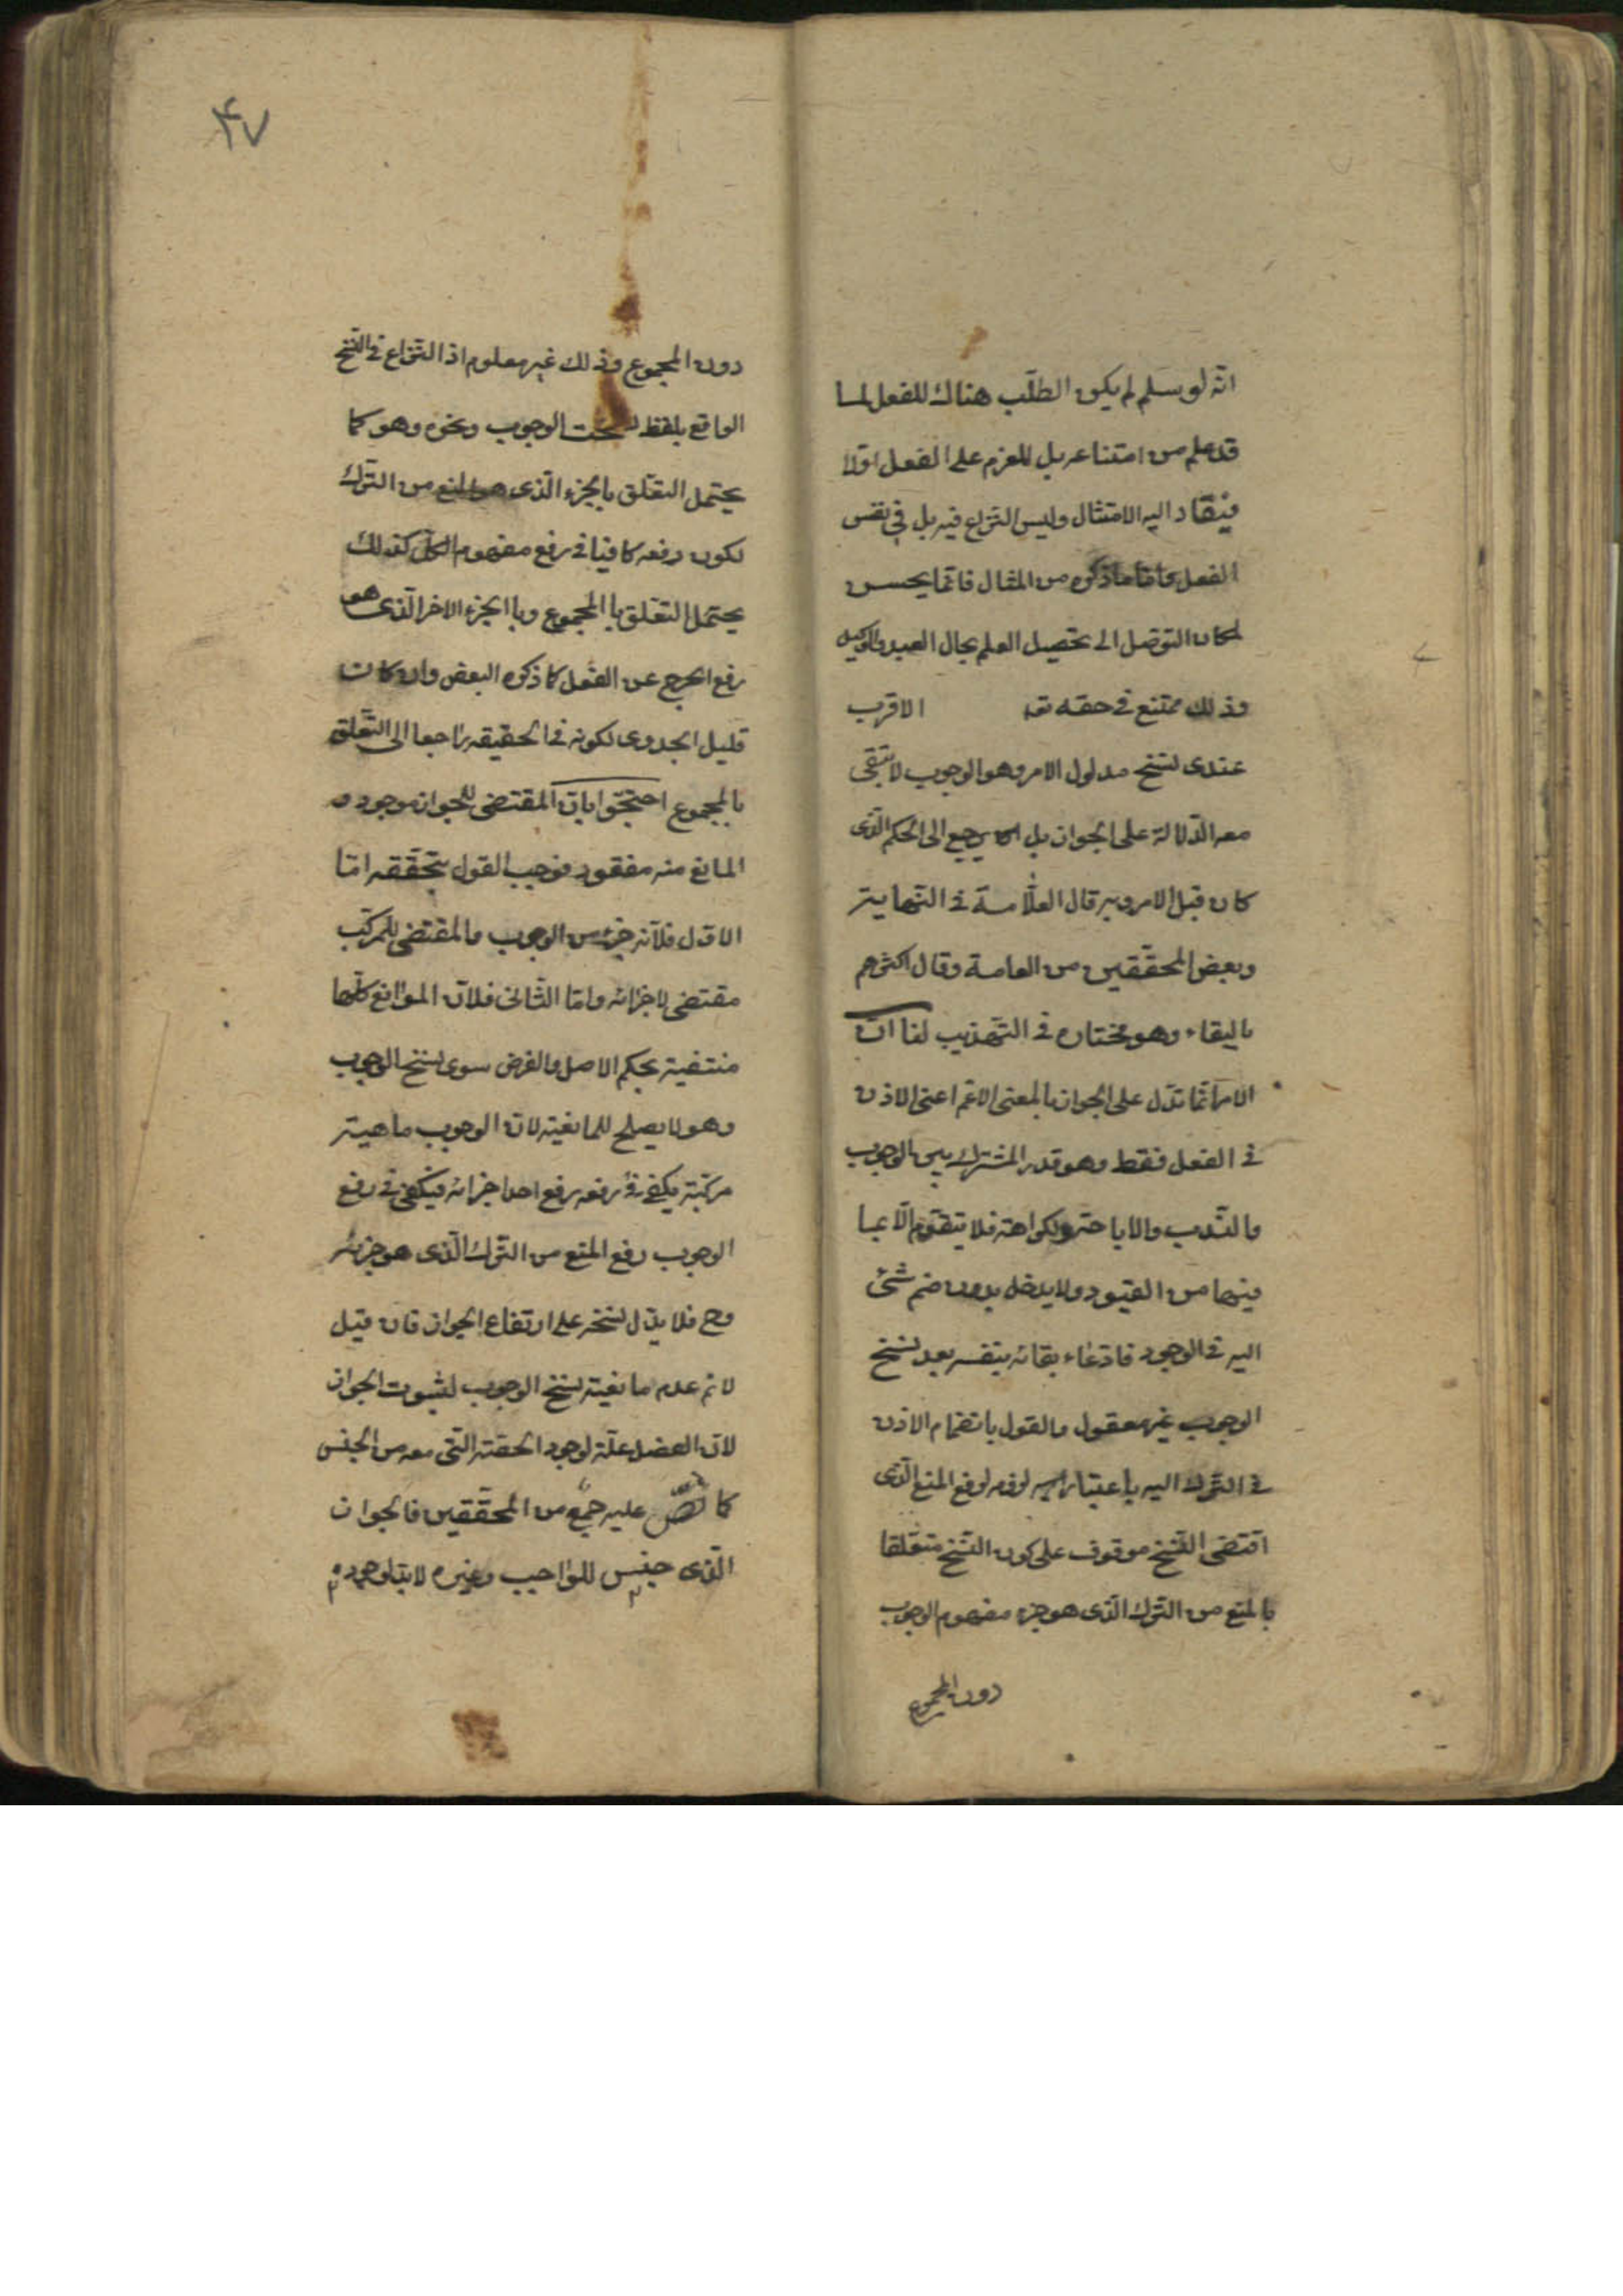 انّه لو سلم لم يكن الطلّب هناك للفعل لما
قد علم من امتناعه بل للعزم على الفعل اوّلا
فينقاد اليه الامتثال وليس النزاع فيه بل في نفس
الفعل واما ما ذكره من المثال فانّما يحسن
لمكان التوصّل الى تحصيل العلم بحال العبد والوكيل
وذلك ممتنع في حقه تعـ الاقرب
عندى نسخ مدلول الامر وهو الوجوب لا تبقى
معه الدّلالة على الجواز بل يرجع الى الحكم الّذى
كان قبل الامر وبه قال العلّامة في النّهاية
وبعض المحقّقين من العامة وقال اكثرهم
بالبقاء وهو مختاره في التّهذيب لنا انّ
الامر انّما تدل على الجواز بالمعنى الاعم اعنى الاذن
في الفعل فقط وهو قدر المشترك بين الوجوب
والنّدب والاباحة والكراهة فلا يتقوّم الّا بما
فيها من القيود ولا يدخل بدون ضم شئ
اليه في الوجود فادّعاء بقائه بنفسه بعد نسخ
الوجوب غير معقول والقول بانضمام الاذن
في التّرك اليه باعتبار لزومه لرفع المنع الّذى
اقتضى النّسخ موقوف على كون النّسخ متعلّقا
بالمنع من التّرك الّذى هو جزء مفهوم الوجوب
دون المجموع
۴۷
دون المجموع وذلك غير معلوم اذ النّزاع في النّسخ
الواقع بلفظ نسخت الوجوب ونحوه وهو كما
يحتمل التعّلق بالجزء الّذى هو المنع من التّرك
لكون رفعه كافيا في رفع مفهوم الكلّ كذلك
يحتمل التعّلق بالمجموع وبالجزء الاخر الّذى هو
رفع الحرج عن الفعل كما ذكره البعض وان كان
قليل الجدوى لكونه في الحقيقه راجعا الى التّعلق
بالمجموع احتجّوا بانّ المقتضى للجواز موجود و
المانع منه مفقود فوجب القول بتحقّقه امّا
الاوّل فلانّه جزء من الوجوب والمقتضى للمركّب
مقتضى لاجزائه وامّا الثّانى فلانّ الموانع كلّها
منتفية بحكم الاصل والفرض سوى نسخ الوجوب
وهو لا يصلح للمانعيّة لانّ الوجوب ماهيّة
مركّبة يكفى في رفعه رفع احد اجزائه فيكفى في رفع
الوجوب رفع المنع من التّرك الّذى هو جزئه
وح فلا يدّل نسخه على ارتفاع الجواز فان قيل
لا نم عدم مانعيّة نسخ الوجوب لثبوت الجواز
لانّ الفصل علّة لوجود الحصّة التّى معه من الجنس
كما نصّ عليه جمع من المحقّقين فالجواز
الّذى جنس للواجب وغيره لا بد لوجوده